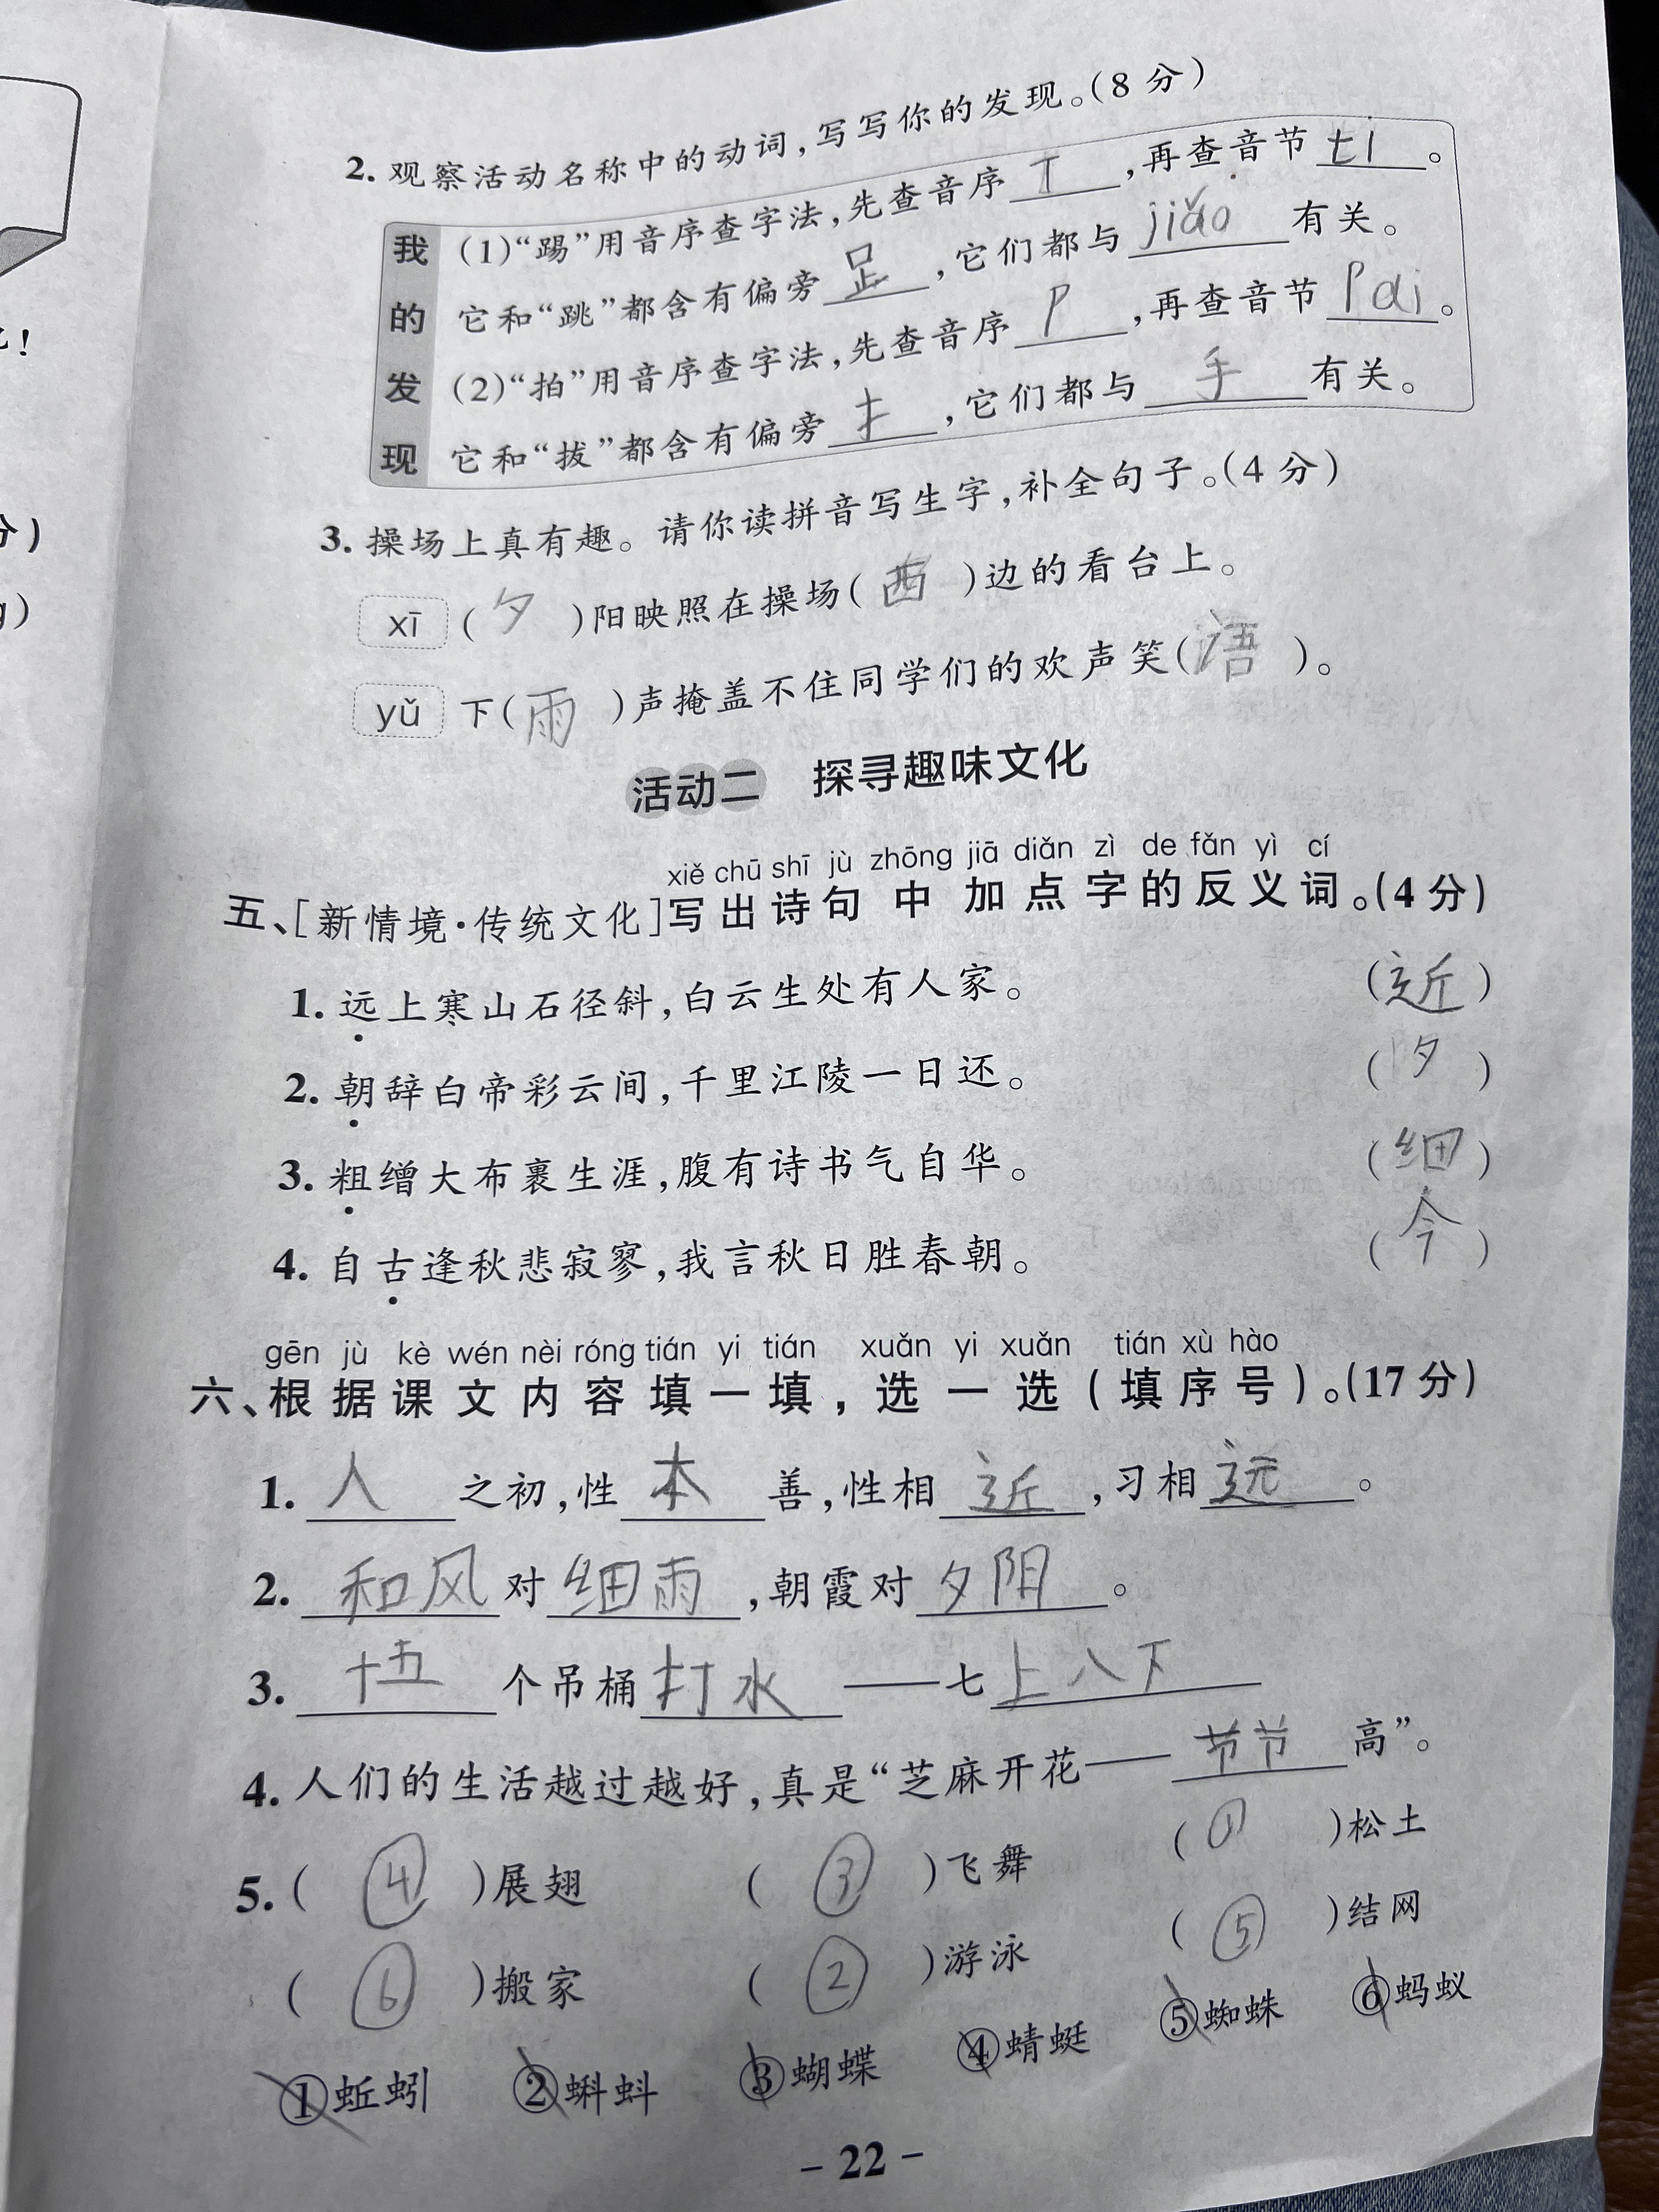 2. 观察活动名称中的动词,写写你的发现。(8 分)
我的发现
(1)“踢”用音序查字法,先查音序 T ,再查音节 ti 。
它和“跳”都含有偏旁 𧾷 ,它们都与 jiǎo 有关。
(2)“拍”用音序查字法,先查音序 P ,再查音节 Pai 。
它和“拔”都含有偏旁 扌 ,它们都与 手 有关。
3. 操场上真有趣。请你读拼音写生字,补全句子。(4 分)
xī ( 夕 )阳映照在操场( 西 )边的看台上。
yǔ 下( 雨 )声掩盖不住同学们的欢声笑( 语 )。
活动二 探寻趣味文化
xiě chū shī jù zhōng jiā diǎn zì de fǎn yì cí
五、[新情境·传统文化]写出诗句中加点字的反义词。(4 分)
1. 远上寒山石径斜,白云生处有人家。 (近)
2. 朝辞白帝彩云间,千里江陵一日还。 (夕)
3. 粗缯大布裹生涯,腹有诗书气自华。 (细)
4. 自古逢秋悲寂寥,我言秋日胜春朝。 (今)
gēn jù kè wén nèi róng tián yi tián xuǎn yi xuǎn tián xù hào
六、根据课文内容填一填,选一选(填序号)。(17 分)
1. 人 之初,性 本 善,性相 近 ,习相 远 。
2. 和风 对 细雨 ,朝霞对 夕阳 。
3. 十五 个吊桶 打水 ——七 上八下
4. 人们的生活越过越好,真是“芝麻开花—— 节节 高”。
5. ( ④ )展翅 ( ③ )飞舞 ( ① )松土
( ⑥ )搬家 ( ② )游泳 ( ⑤ )结网
①蚯蚓 ②蝌蚪 ③蝴蝶 ④蜻蜓 ⑤蜘蛛 ⑥蚂蚁
– 22 –